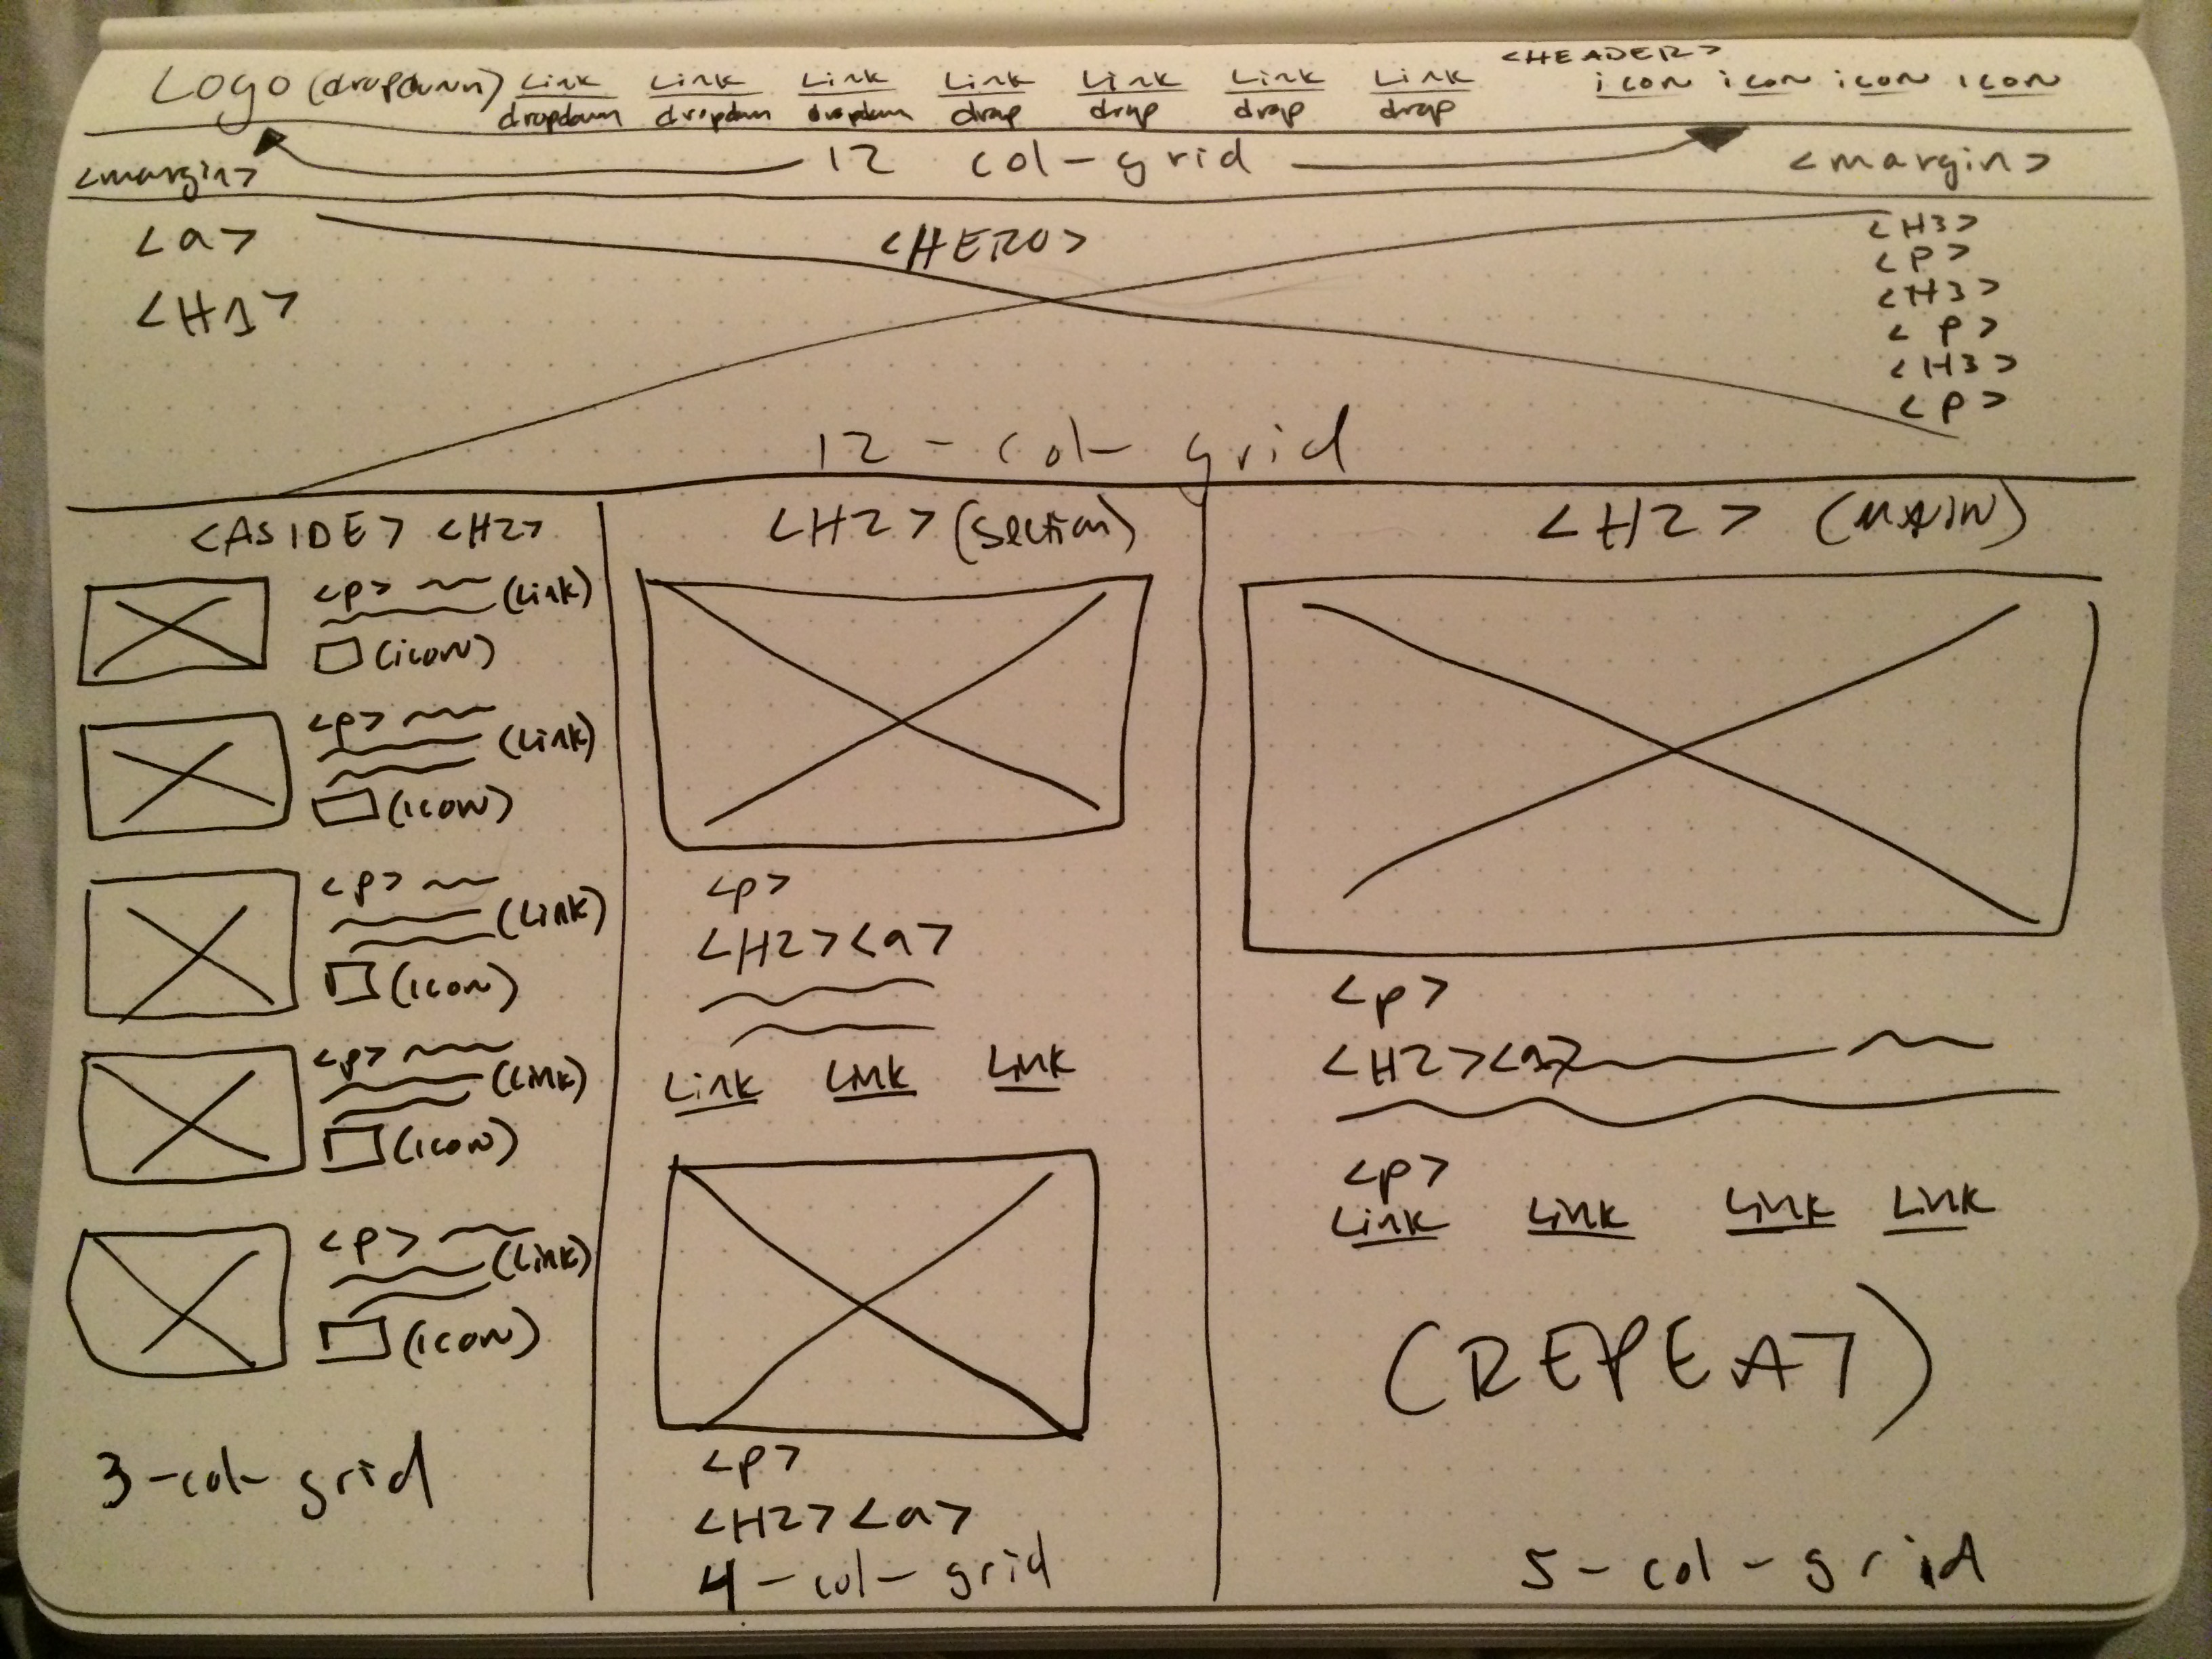 <HEADER>
Logo (dropdown) Link Link Link Link Link Link Link icon icon icon icon
dropdown dropdown dropdown drop drop drop drop
<margin> 12 col-grid <margin>
<a> <HERO> <H3>
<H1> <p>
<H3>
<p>
<H3>
<p>
12-col-grid
<ASIDE> <H2>
<p> (Link)
(icon)
<p> (Link)
(icon)
<p> (Link)
(icon)
<p> (Link)
(icon)
<p> (Link)
(icon)
3-col-grid
<H2> (section)
<p>
<H2> <a>
Link Link Link
<p>
<H2> <a>
4-col-grid
<H2> (MAIN)
<p>
<H2> <a>
<p>
Link Link Link Link
(REPEAT)
5-col-grid